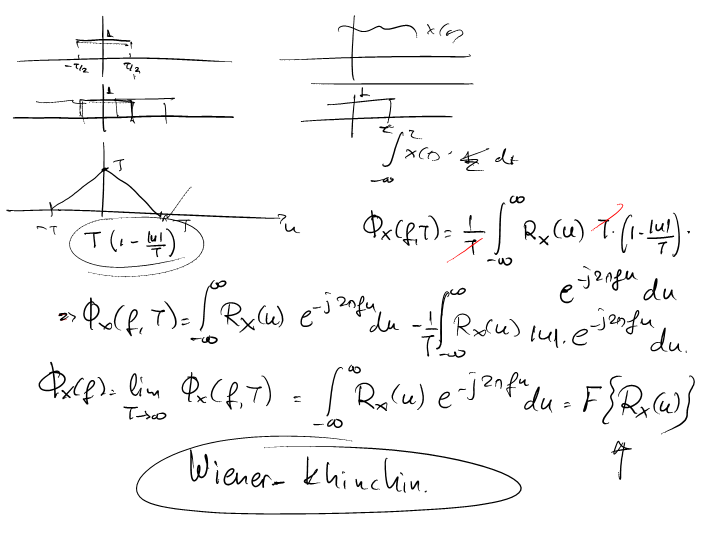 1
-T/2 T/2
x(t)
1
1
τ
∫_{-∞}^{τ} x(t) · dt
T
-T T u
T (1 - |u|/T)
Φ_x(f,T) = 1/T ∫_{-∞}^{∞} R_x(u) T · (1 - |u|/T) · e^{-j2πfu} du
=> Φ_x(f,T) = ∫_{-∞}^{∞} R_x(u) e^{-j2πfu} du - 1/T ∫_{-∞}^{∞} R_x(u) |u| . e^{-j2πfu} du.
Φ_x(f) = lim_{T→∞} Φ_x(f,T) = ∫_{-∞}^{∞} R_x(u) e^{-j2πfu} du = F{R_x(u)}
Wiener - Khinchin.